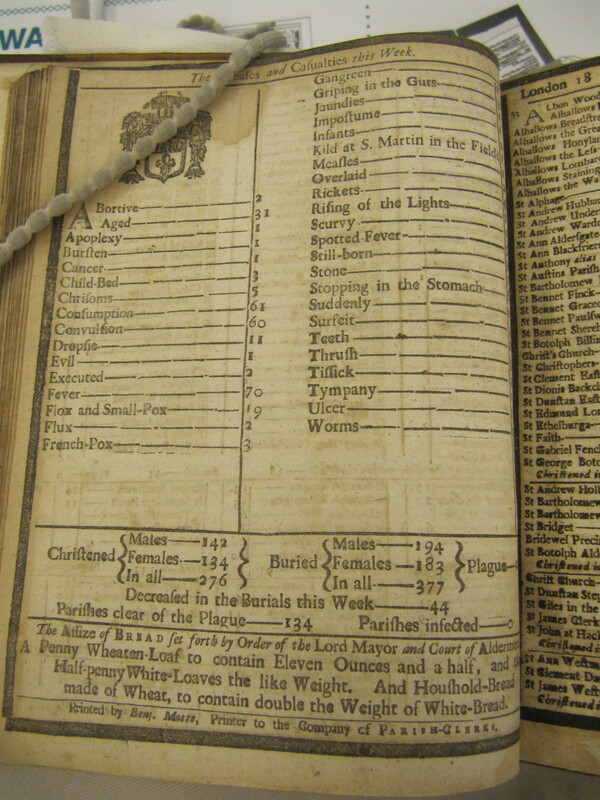 WA
The Diseases and Casualties this Week.
Abortive 2
Aged 31
Apoplexy 1
Burſten 1
Cancer 1
Child-Bed 3
Chriſoms 5
Conſumption 61
Convulſion 60
Dropſie 11
Evil 1
Executed 2
Fever 70
Flox and Small-Pox 19
Flux 2
French-Pox 3
Gangreen
Griping in the Guts
Jaundies
Impoſtume
Infants
Kild at S. Martin in the Fields
Meaſles
Overlaid
Rickets
Riſing of the Lights
Scurvy
Spotted Fever
Still-born
Stone
Stopping in the Stomach
Suddenly
Surfeit
Teeth
Thruſh
Tiſſick
Tympany
Ulcer
Worms
Chriſtened
Males 142
Females 134
In all 276
Buried
Males 194
Females 183
In all 377
Plague
Decreaſed in the Burials this Week 44
Pariſhes clear of the Plague 134 Pariſhes infected 0
The Aſſize of BREAD ſet forth by Order of the Lord Mayor and Court of Aldermen
A Penny Wheaten-Loaf to contain Eleven Ounces and a half, and
Half-penny White-Loaves the like Weight. And Houſhold-Bread
made of Wheat, to contain double the Weight of White-Bread.
Printed by Benj. Motte, Printer to the Company of PARISH-CLERKS.
London 18
St Alban Wood
Alhallows Breadſtre
Alhallows the Grea
Alhallows Honylan
Alhallows the Leſs
Alhallows Lombar
Alhallows Staining
Alhallows the Wa
St Alphage
St Andrew Hubba
St Andrew Under
St Andrew Wardr
St Ann Alderſgate
St Ann Blackfrier
St Anthony alias
St Auſtins Pariſh
St Bartholomew
St Bennet Finck
St Bennet Gracec
St Bennet Paulſw
St Bennet Shereh
St Botolph Billin
Chriſt's Church
St Chriſtophers
St Clement Eaſt
St Dionis Backch
St Dunſtan Eaſt
St Edmund Lo
St Ethelburga
St Faith
St Gabriel Fench
St George Boto
Chriſtened in
St Andrew Holb
St Bartholomew
St Bartholomew
St Bridget
Bridewel Precin
St Botolph Ald
Chriſtened i
Chriſt Church
St Dunſtan Step
St Giles in the
St James Clerk
St John at Hack
Chriſtened i
St Ann Weſtm
St Clement Da
St James Weſt
Chriſtened i